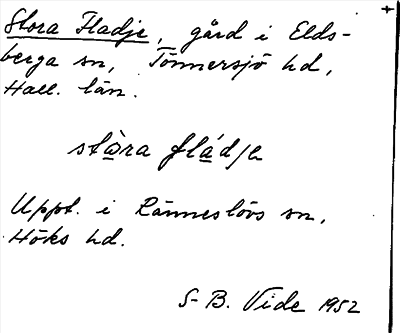 Stora Fladje, gård i Elds-
berga sn, Tönnersjö hd,
Hall. län.
stòra fládje
Uppt. i Ränneslövs sn,
Höks hd.
S-B. Vide 1952